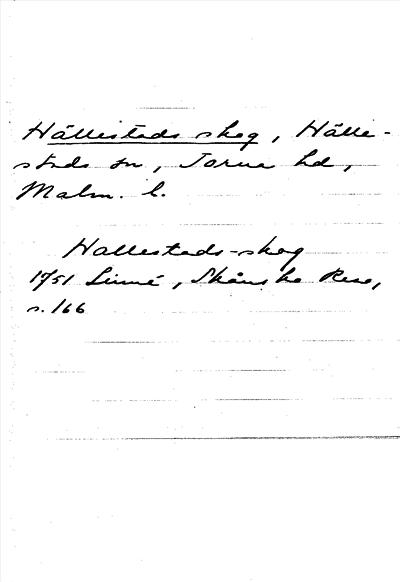 Hällestads skog, Hälle-
stads sn, Torna hd,
Malm. l.
Hallestads-skog
1751 Linné, Skånska Resa,
s. 166